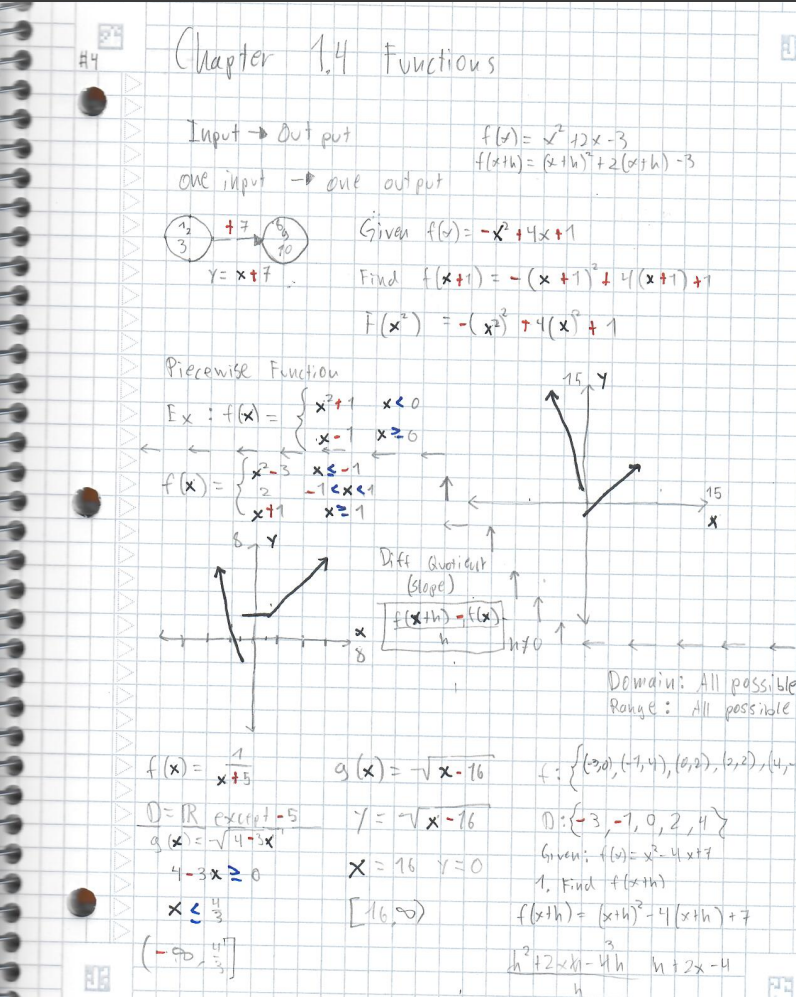 #4
Chapter 1.4 Functions
Input → Output
one input → one output
f(x) = x² + 2x - 3
f(x+h) = (x+h)² + 2(x+h) - 3
1, 2
3
+7
8
9
10
y = x + 7
Given f(x) = -x² + 4x + 1
Find f(x+1) = -(x+1)² + 4(x+1) + 1
F(x²) = -(x²)² + 4(x)² + 1
Piecewise Function
Ex : f(x) = { x² + 1 x < 0
x - 1 x ≥ 0
f(x) = { x² - 3 x ≤ -1
2 -1 < x < 1
x + 1 x ≥ 1
15 y
15
x
8 y
x
8
Diff Quotient
(slope)
f(x+h) - f(x)
h
h≠0
Domain: All possible
Range: All possible
f(x) = 1
x+5
D = ℝ except -5
g(x) = √4-3x
4 - 3x ≥ 0
x ≤ 4/3
(-∞, 4/3]
g(x) = √x-16
y = √x-16
x = 16 y = 0
[16,∞)
f: {(-3,0), (-1,4), (0,2), (2,2), (4,-
D: {-3, -1, 0, 2, 4}
Given: f(x) = x² - 4x + 7
1. Find f(x+h)
f(x+h) = (x+h)² - 4(x+h) + 7
h² + 2xh - 4h h + 2x - 4
h